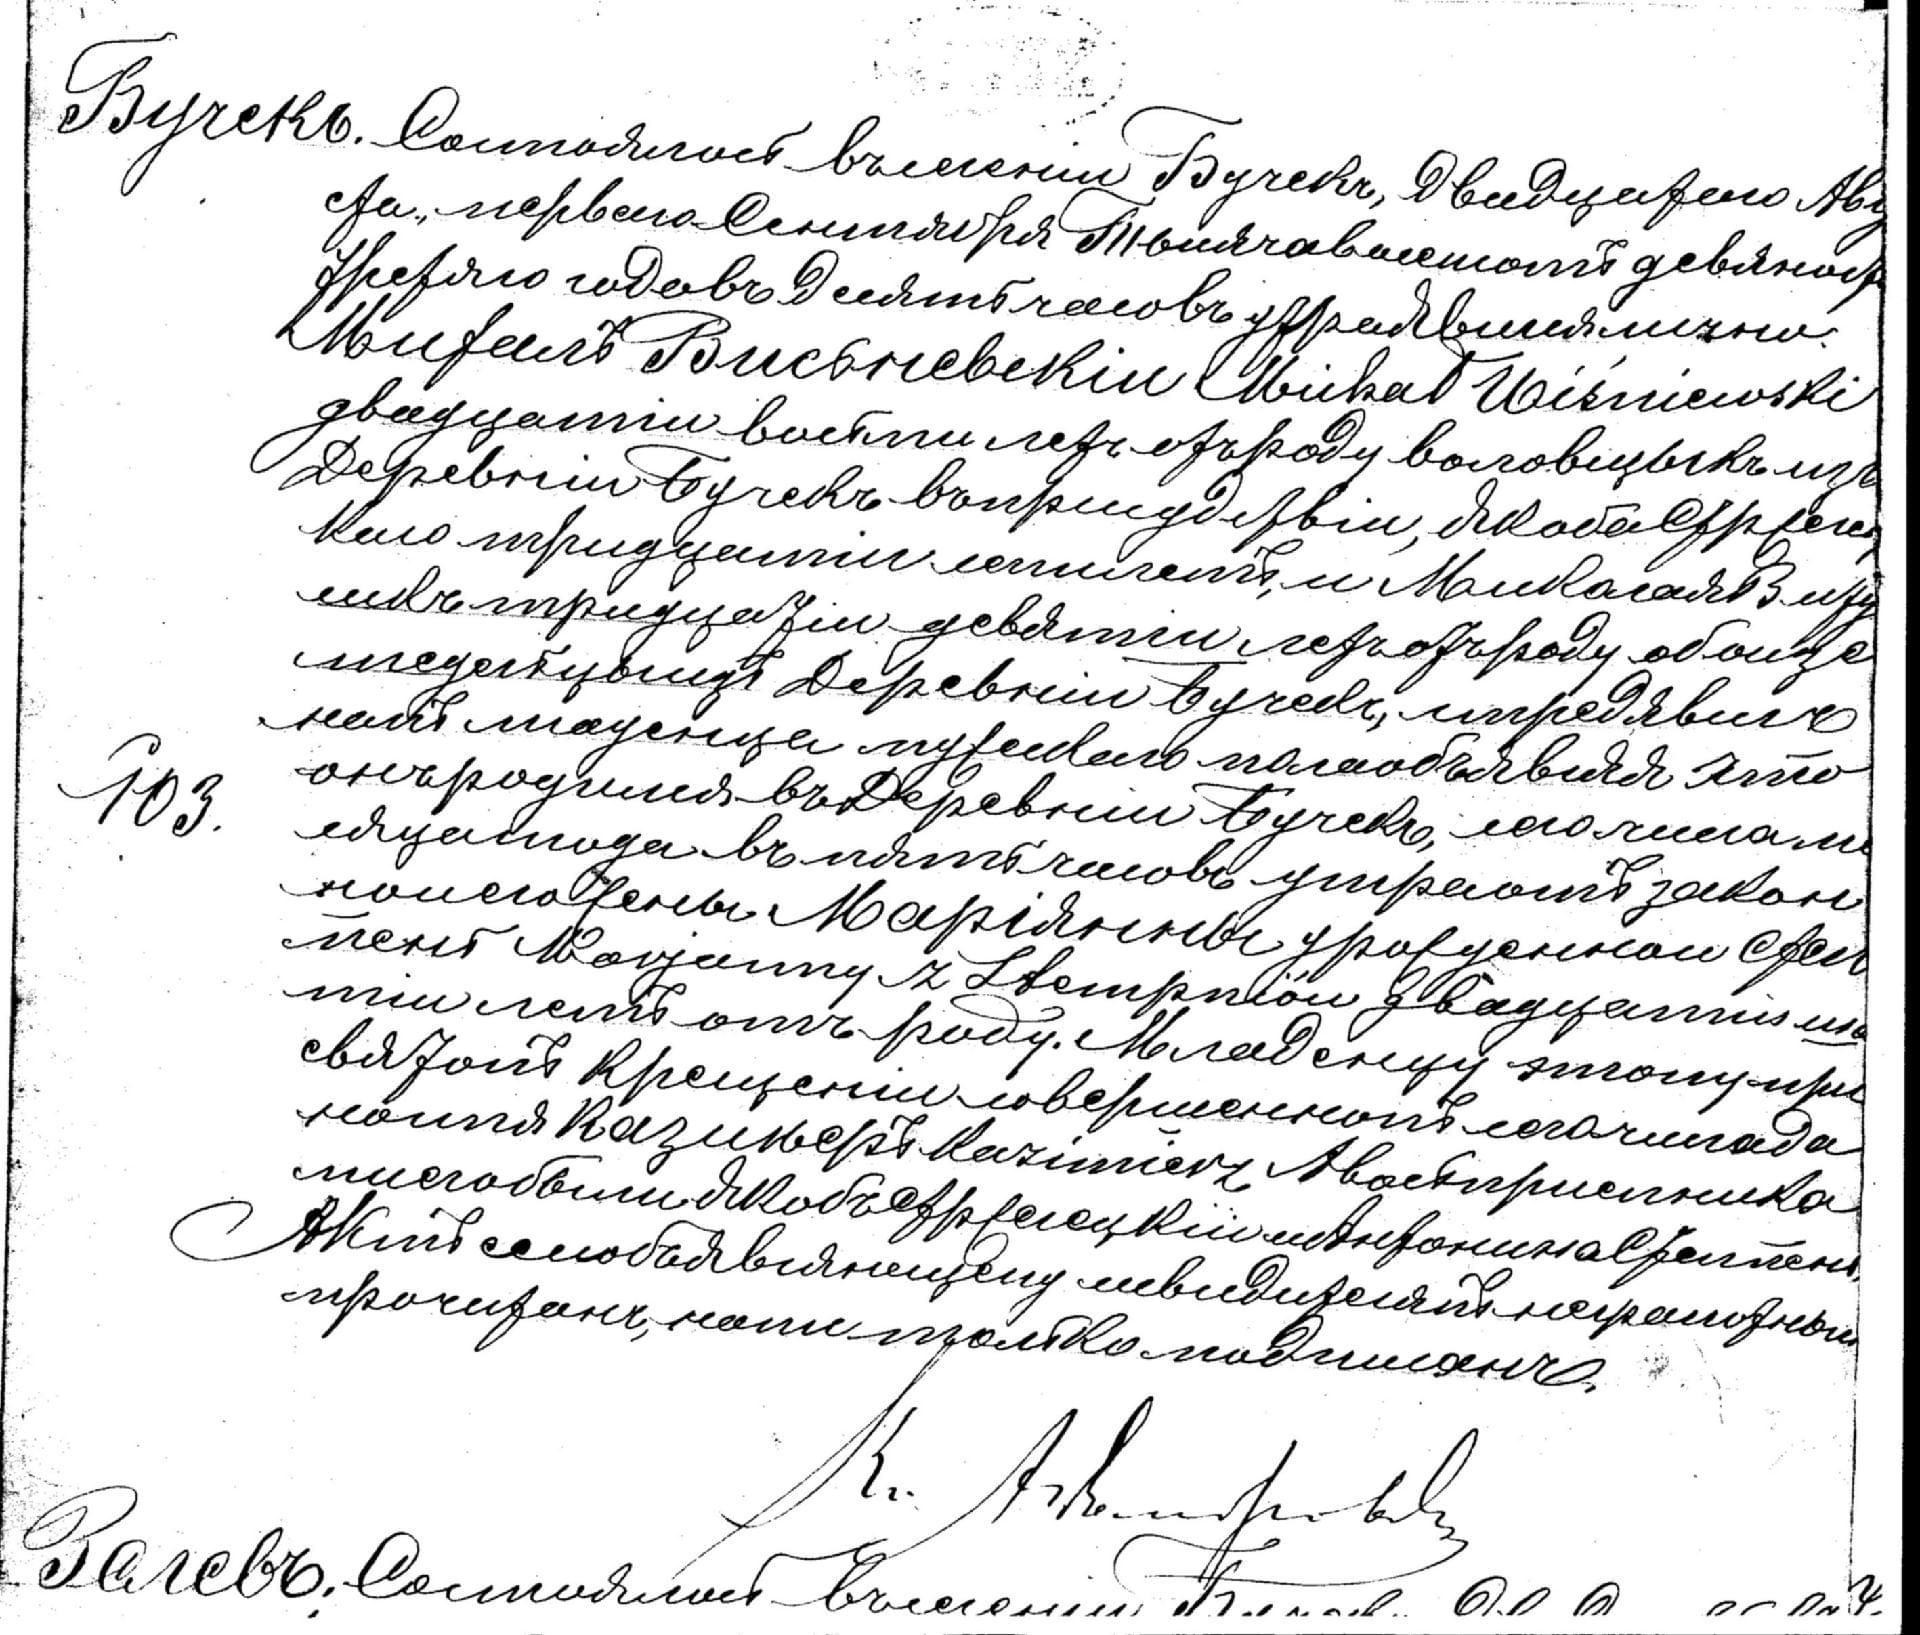 Бучекъ. Состоялось въ селеніи Бучекъ, двадцатаго Авгу
ста, перваго Сентября Тысяча восемьсотъ девяносто
третяго года въ десять часовъ утра явился лично
Михалъ Висьневскій Michał Wiśniewski
двадцати восьми летъ отъ роду изъ
Деревни Бучекъ въ присудствіи, Якоба
каго тридцати летъ, и Миколая
тридцати девяти летъ отъ роду обоихъ
изъ Деревни Бучекъ, и предявилъ
намъ младенца мужескаго пола объявляя что
онъ родился въ Деревни Бучекъ, сего числа ме
сяца и года въ пять часовъ утра отъ закон
ной его жены Маріянны урожденной Стем
пень Marjanny z Stempniów двадцати
ти летъ отъ роду. Младенцу этому при
103.
святомъ Крещеніи совершенномъ сего числа да
но имя Казимеръ Kazimierz, А воспріемника
ми его были Якобъ и Антонина Стемпень,
Актъ сей объявляющему и свидителямъ неграмотнымъ
прочитанъ, нами только подписанъ.
Кс.
Залевъ. Состоялось въ селеніи